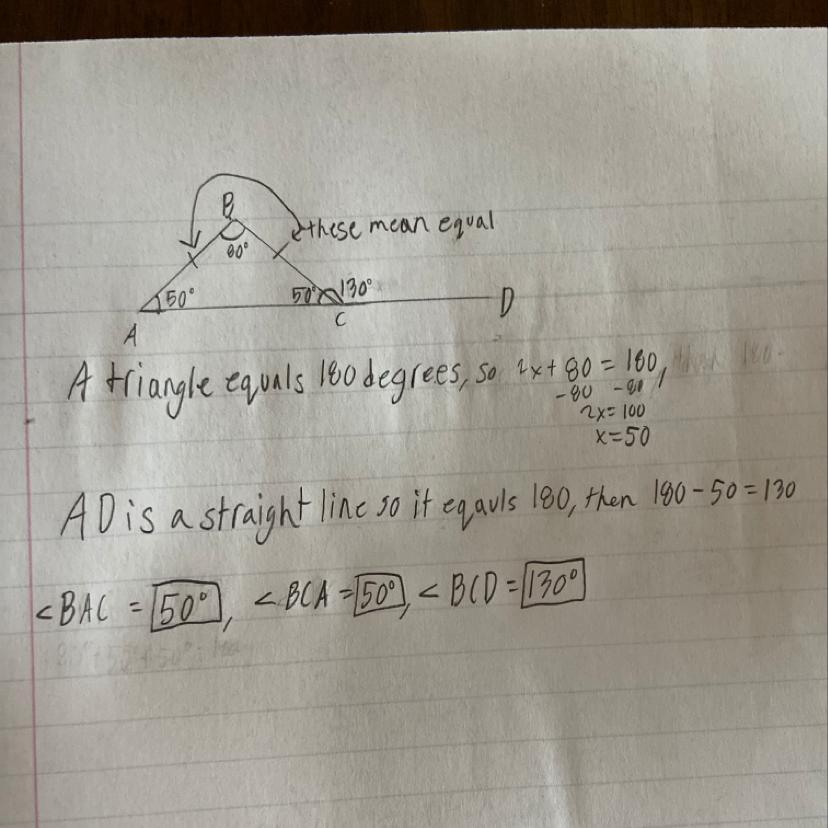 B
these mean equal
80°
50° 50° 130°
A C D
A triangle equals 180 degrees, so 2x + 80 = 180,
-80 -80
2x = 100
x = 50
AD is a straight line so it eqauls 180, then 180 - 50 = 130
<BAC = 50°, <BCA = 50°, <BCD = 130°